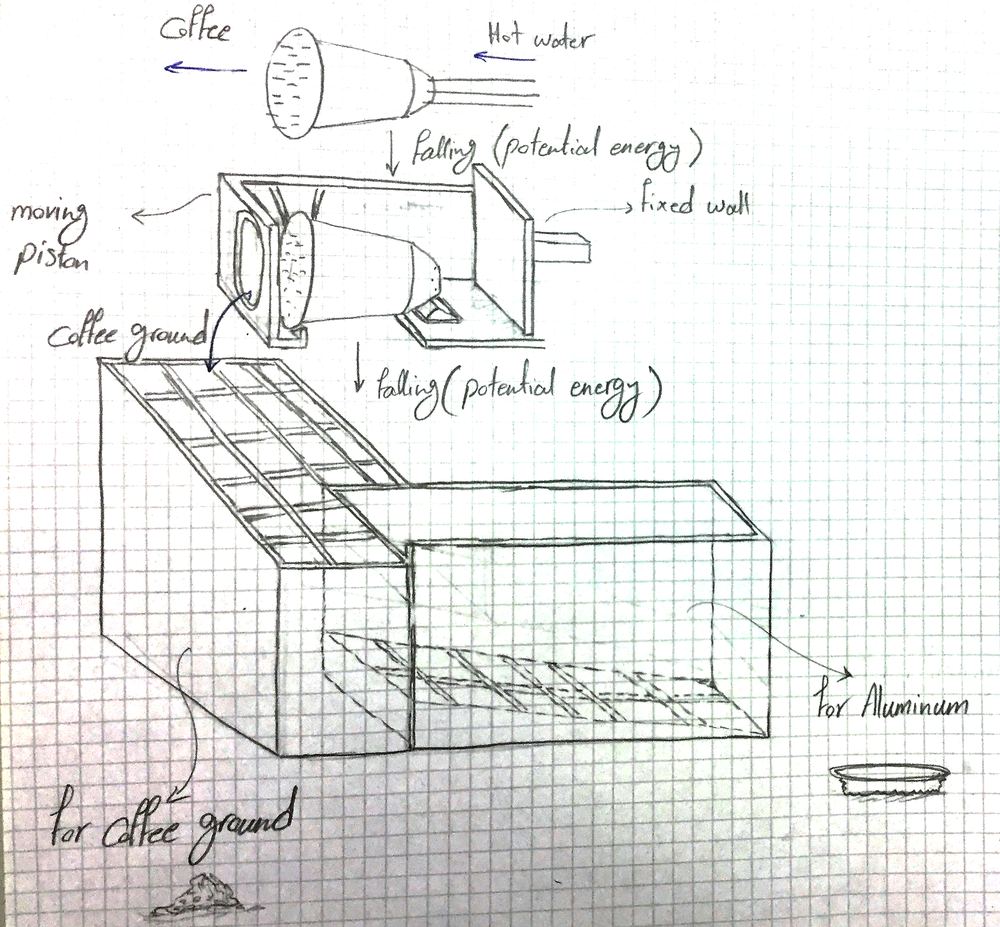 Coffee
Hot water
falling (potential energy)
moving
piston
fixed wall
Coffee ground
falling (potential energy)
for Aluminum
for Coffee ground